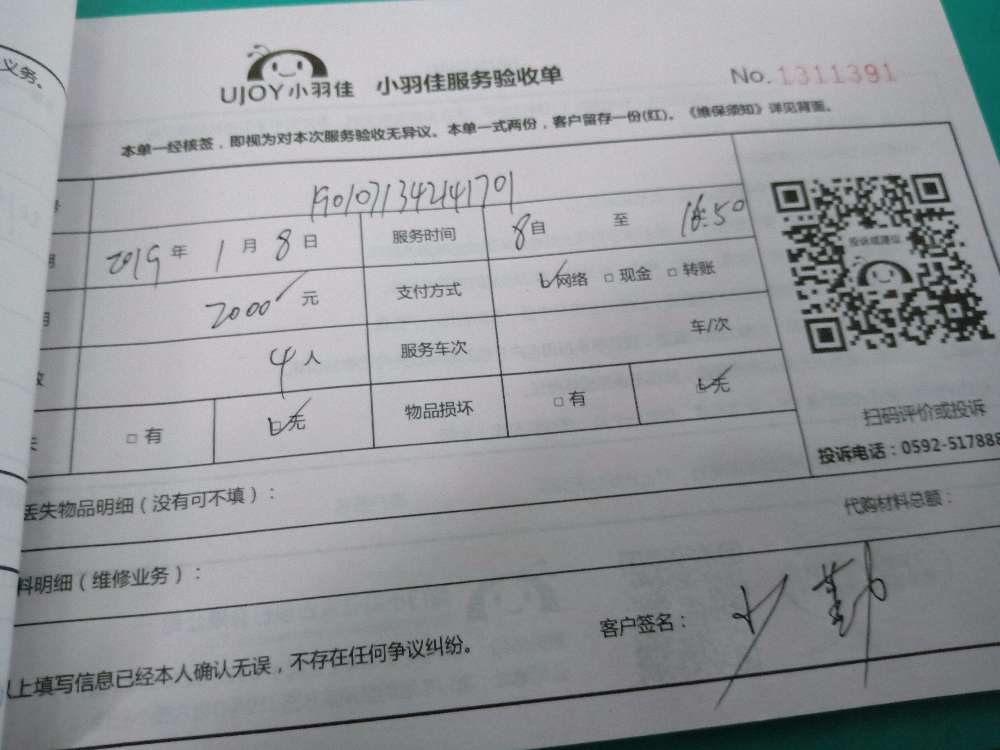 义务。
UJOY小羽佳 小羽佳服务验收单 No.1311391
本单一经核签，即视为对本次服务验收无异议。本单一式两份，客户留存一份(红)。《维保须知》详见背面。
190107134241701
2019年1月8日 服务时间 8自 至 16:50
2000元 支付方式 网络 □现金 □转账
4人 服务车次 车/次
□有 无 物品损坏 □有 无
投诉或建议
扫码评价或投诉
投诉电话：0592-517888
丢失物品明细（没有可不填）： 代购材料总额：
料明细（维修业务）：
以上填写信息已经本人确认无误，不存在任何争议纠纷。 客户签名：